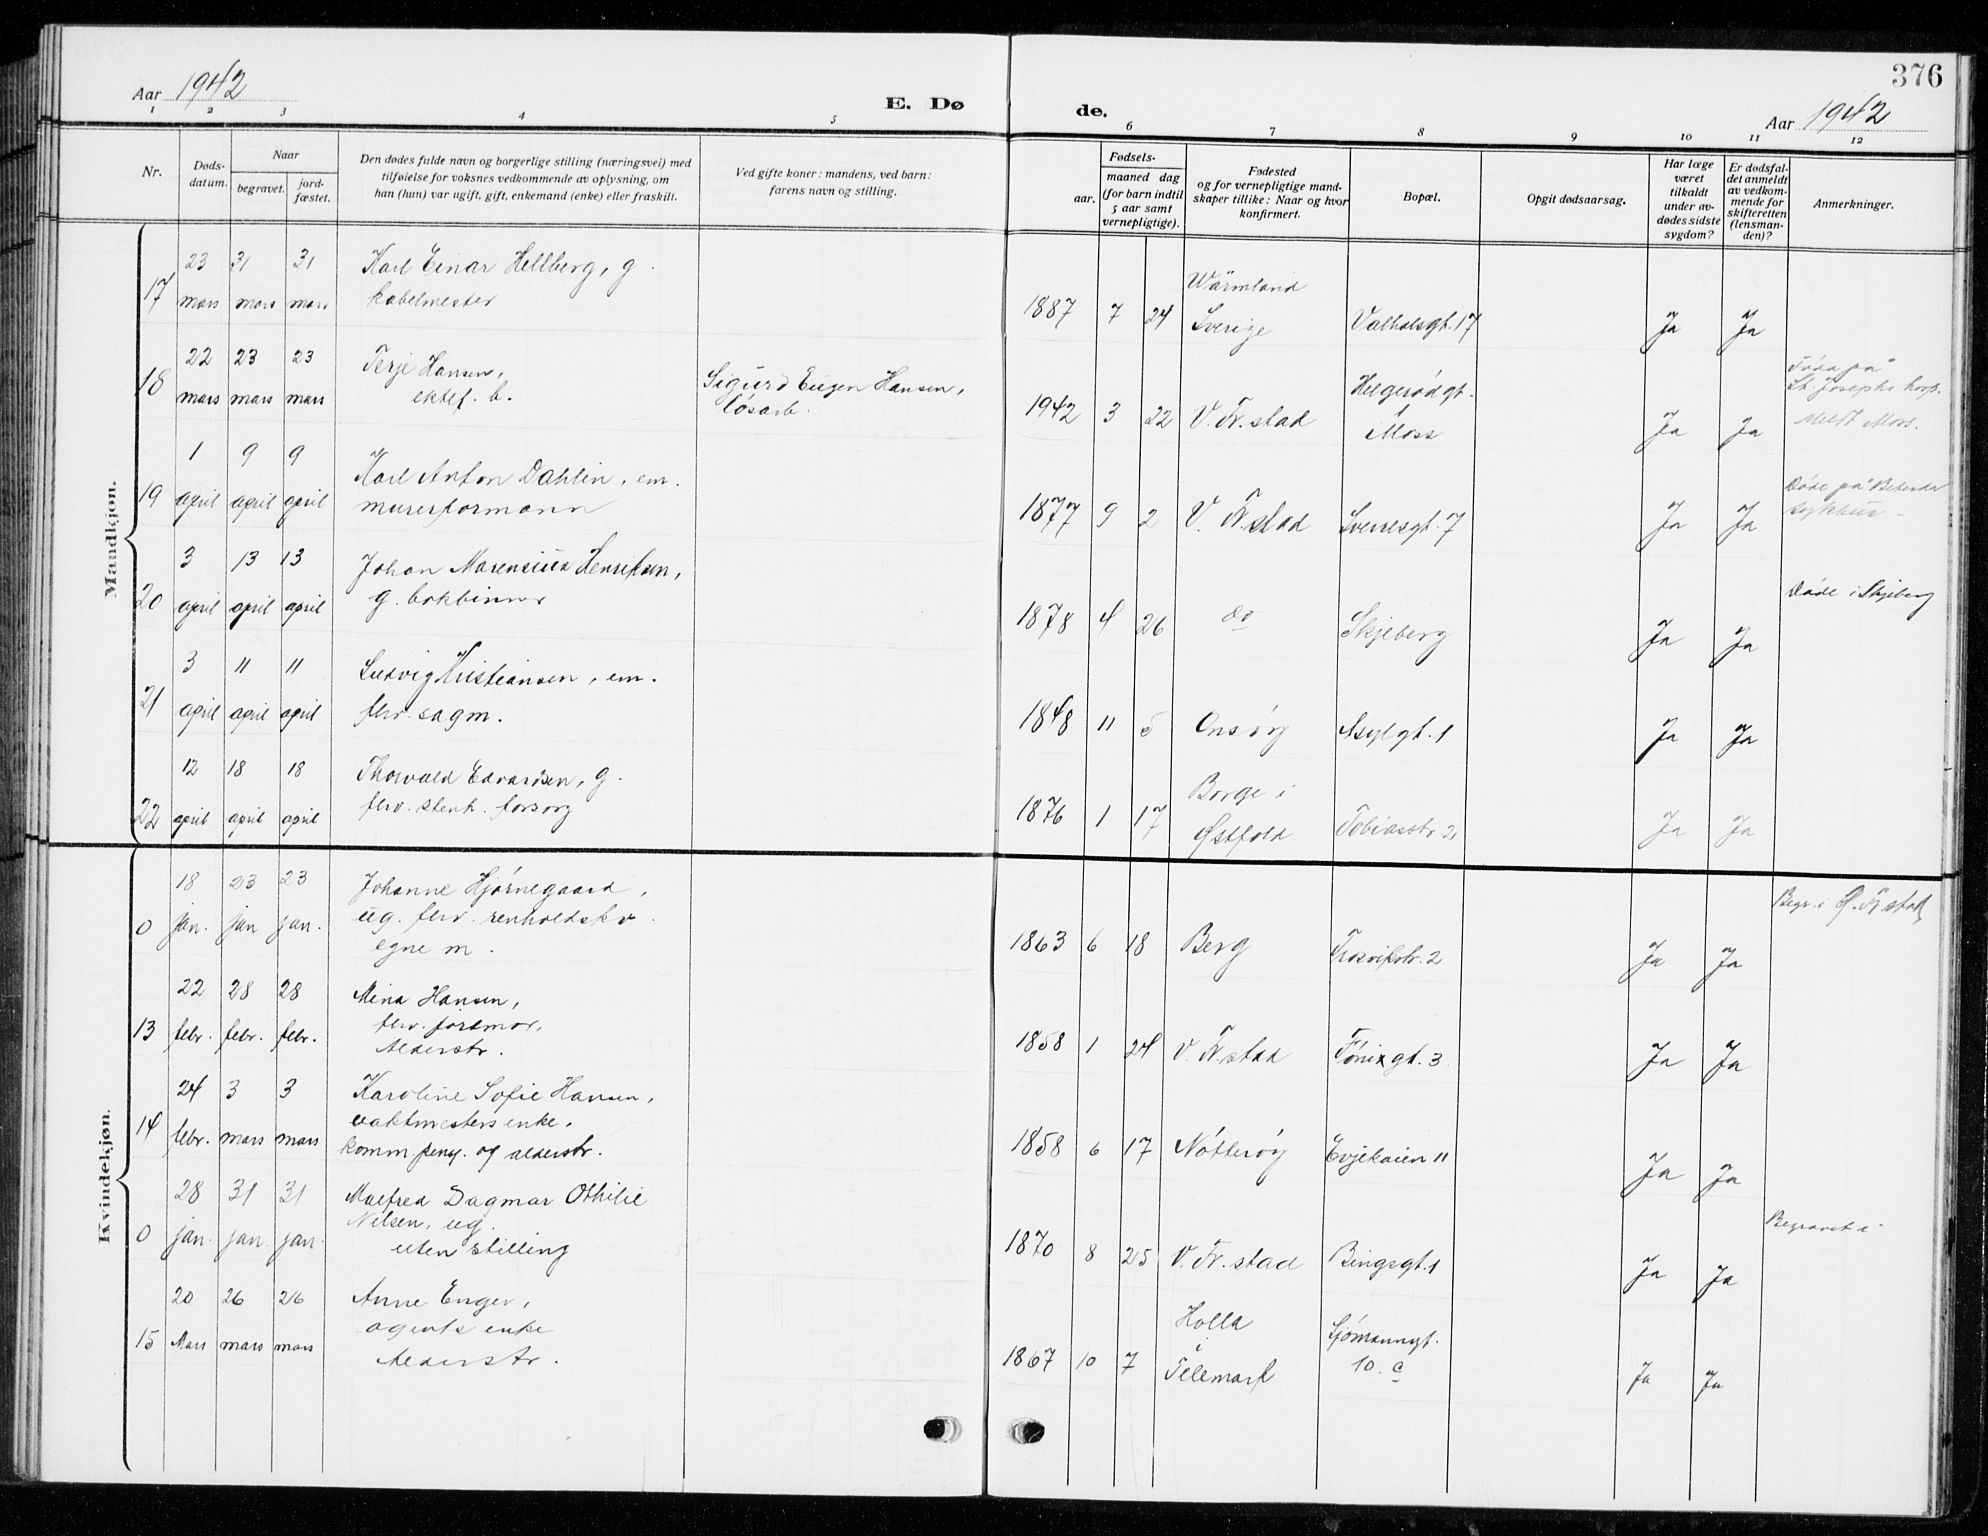 376
Aar 1942
E. Dø de.
Aar 1942
1 2 3 4 5 6 7 8 9 10 11 12
Nr.
Døds-
datum.
Naar
begravet.
jord-
fæstet.
Den dødes fulde navn og borgerlige stilling (næringsvei) med
tilføielse for voksnes vedkommende av oplysning, om
han (hun) var ugift, gift, enkemand (enke) eller fraskilt.
Ved gifte koner: mandens, ved barn:
farens navn og stilling.
Fødsels-
aar.
maaned dag
(for barn indtil
5 aar samt
vernepligtige).
Fødested
og for vernepligtige mand-
skaper tillike: Naar og hvor
konfirmert.
Bopæl.
Opgit dødsaarsag.
Har læge
været
tilkaldt
under av-
dødes sidste
sygdom?
Er dødsfal-
det anmeldt
av vedkom-
mende for
skifteretten
(lensman-
den)?
Anmerkninger.
Maandkjøn.
23 31 31 Karl Einar Hellberg, g. Wärmland
17 mars mars mars kabelmester 1887 7 24 Sverige Valhalsgt. 17 Ja Ja
22 23 23 Terje Hansen, Sigurd Eugen Hansen, Helgerødgt. Føda på
18 mars mars mars ektef. b. løsarb. 1942 3 22 V. Fr.stad i Moss Ja Ja St. Josephs hosp.
Meldt Moss.
1 9 9 Karl Anton Dahlin, em. Døde på
19 april april april murerformann 1877 9 2 V. Fr.stad Sverresgt. 7 Ja Ja sykehus
3 13 13 Johan Marensius Henriksen, Døde i Skjeberg
20 april april april g. bokbinner 1878 4 26 do Skjeberg Ja Ja
3 11 11 Ludvig Kristiansen, em.
21 april april april fhv. sagm. 1848 11 5 Onsøy Asylgt. 1 Ja Ja
12 18 18 Thorvald Edvardsen, g. Borge i
22 april april april fhv. stenh. forsorg 1876 1 17 Østfold Tobiasstr. 21 Ja Ja
Kvindekjøn.
18 23 23 Johanne Hjørnegaard, Begr. i Ø. Fr.stad
0 jan. jan jan. ug. fhv. renholdskv.
egne m. 1863 6 18 Berg Trosvikstr. 2 Ja Ja
22 28 28 Mina Hansen,
13 febr. febr. febr. fhv. jordmor,
Alderstr. 1858 1 24 V. Fr.stad Fønixgt. 3 Ja Ja
24 3 3 Karoline Sofie Hansen,
14 febr. mars mars vaktmesters enke,
komm. pensj. og alderstr. 1858 6 17 Nøtterøy Evjekaien 11 Ja Ja
28 31 31 Malfred Dagmar Othilie Begravet i
0 jan. jan. jan. Nilsen, ug.
uten stilling 1870 8 25 V. Fr. stad Bingsgt. 1 Ja Ja
20 26 26 Anne Enger, Holla Sjømannsgt.
15 Mars mars mars agents enke i 10. c
Alderstr. 1867 10 7 Telemark Ja Ja